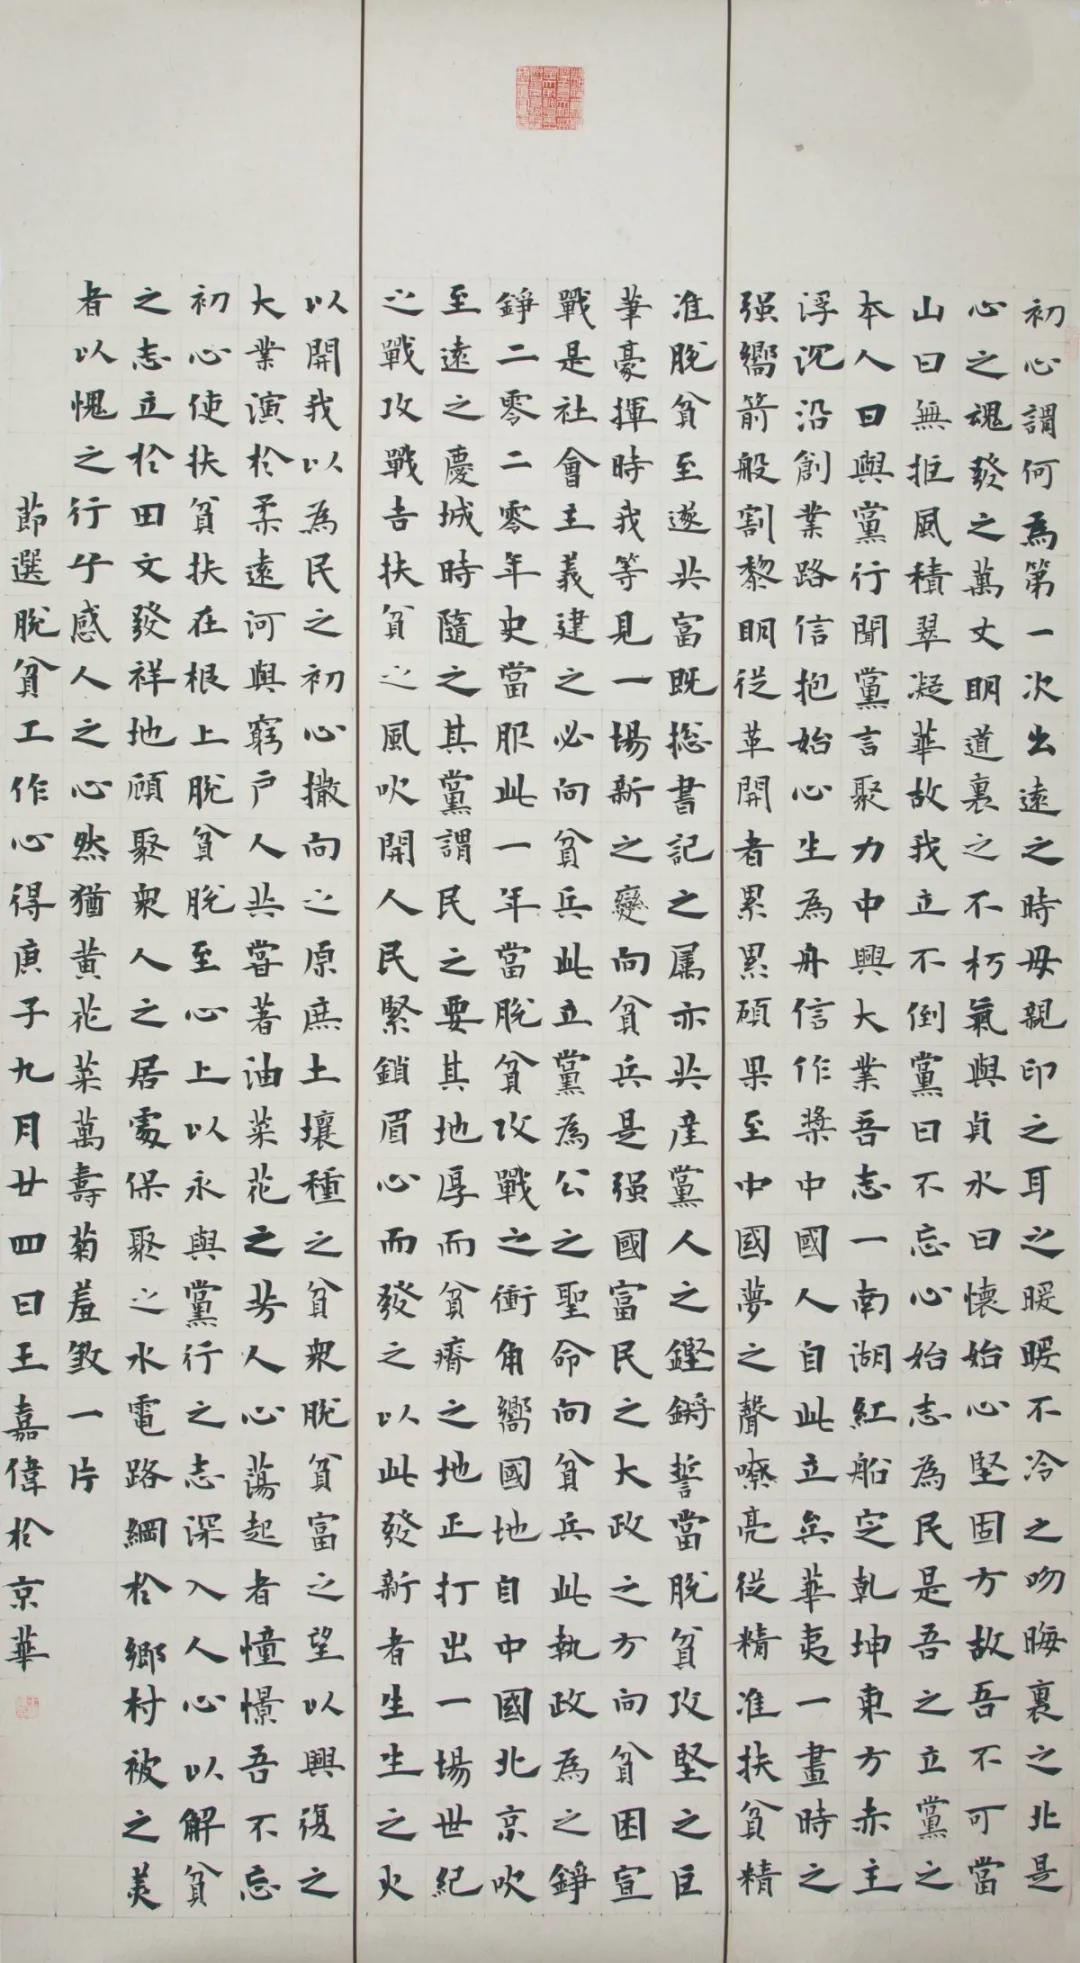 初心謂何為第一次出遠之時母親印之耳之暖暖不冷之吻晦裏之北是
心之魂發之萬丈明道裏之不朽氣與貞水曰懷始心堅固方故吾不可當
山曰無拒風積翠凝華故我立不倒黨曰不忘心始志為民是吾之立黨之
本人曰與黨行聞黨言聚力中興大業吾志一南湖紅船定乾坤東方赤主
浮沉沿創業路信抱始心生為舟信作槳中國人自此立矣華夷一畫時之
强嚮箭般割黎明從革開者累累碩果至中國夢之聲嘹亮從精准扶貧精
准脫貧至遂共富既總書記之属亦共産黨人之鏗鏘誓當脫貧攻堅之巨
筆豪揮時我等見一場新之變向貧兵是强國富民之大政之方向貧困宣
戰是社會主義建之必向貧兵此立黨為公之聖命向貧兵此執政為之錚
錚二零二零年史當服此一年當脫貧攻戰之衝角嚮國地自中國北京吹
至遠之慶城時隨之其黨謂民之要其地厚而貧瘠之地正打出一場世紀
之戰攻戰吉扶貧之風吹開人民緊鎖眉心而發之以此發新者生生之火
以開我以為民之初心撒向之原庶土壤種之貧衆脫貧富之望以興復之
大業演於柔遠河與窮户人共嘗著油菜花之芳人心蕩起者憧憬吾不忘
初心使扶貧扶在根上脫貧脫至心上以永與黨行之志深入人心以解貧
之志立於田文發祥地顧聚衆人之居處保聚之水電路網於鄉村被之美
者以愧之行乎感人之心然猶黄花菜萬壽菊羞數一片
節選脫貧工作心得庚子九月廿四日王嘉偉於京華